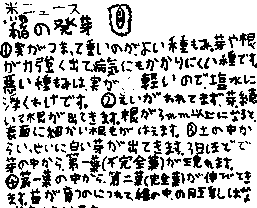 米ニュース
稲の発芽
①実がつまって重いのがよい種もみ。芽や根
が力強く出て病気にもかかりにくい種です。
悪い種もみは実が 軽いので塩水に
浮くわけです。②えいがわれてまず芽、続
いて根が出てきます。根が 以上になると、
表面に細かい根毛がはえます。③土の中か
らいっせいに白い芽が出てきます。3日ほどで
芽の中から、第一葉(不完全葉)が現れます。
④第一葉の中から、第二葉(完全葉)が伸びてき
ます。苗が育つのにつれて種の中の